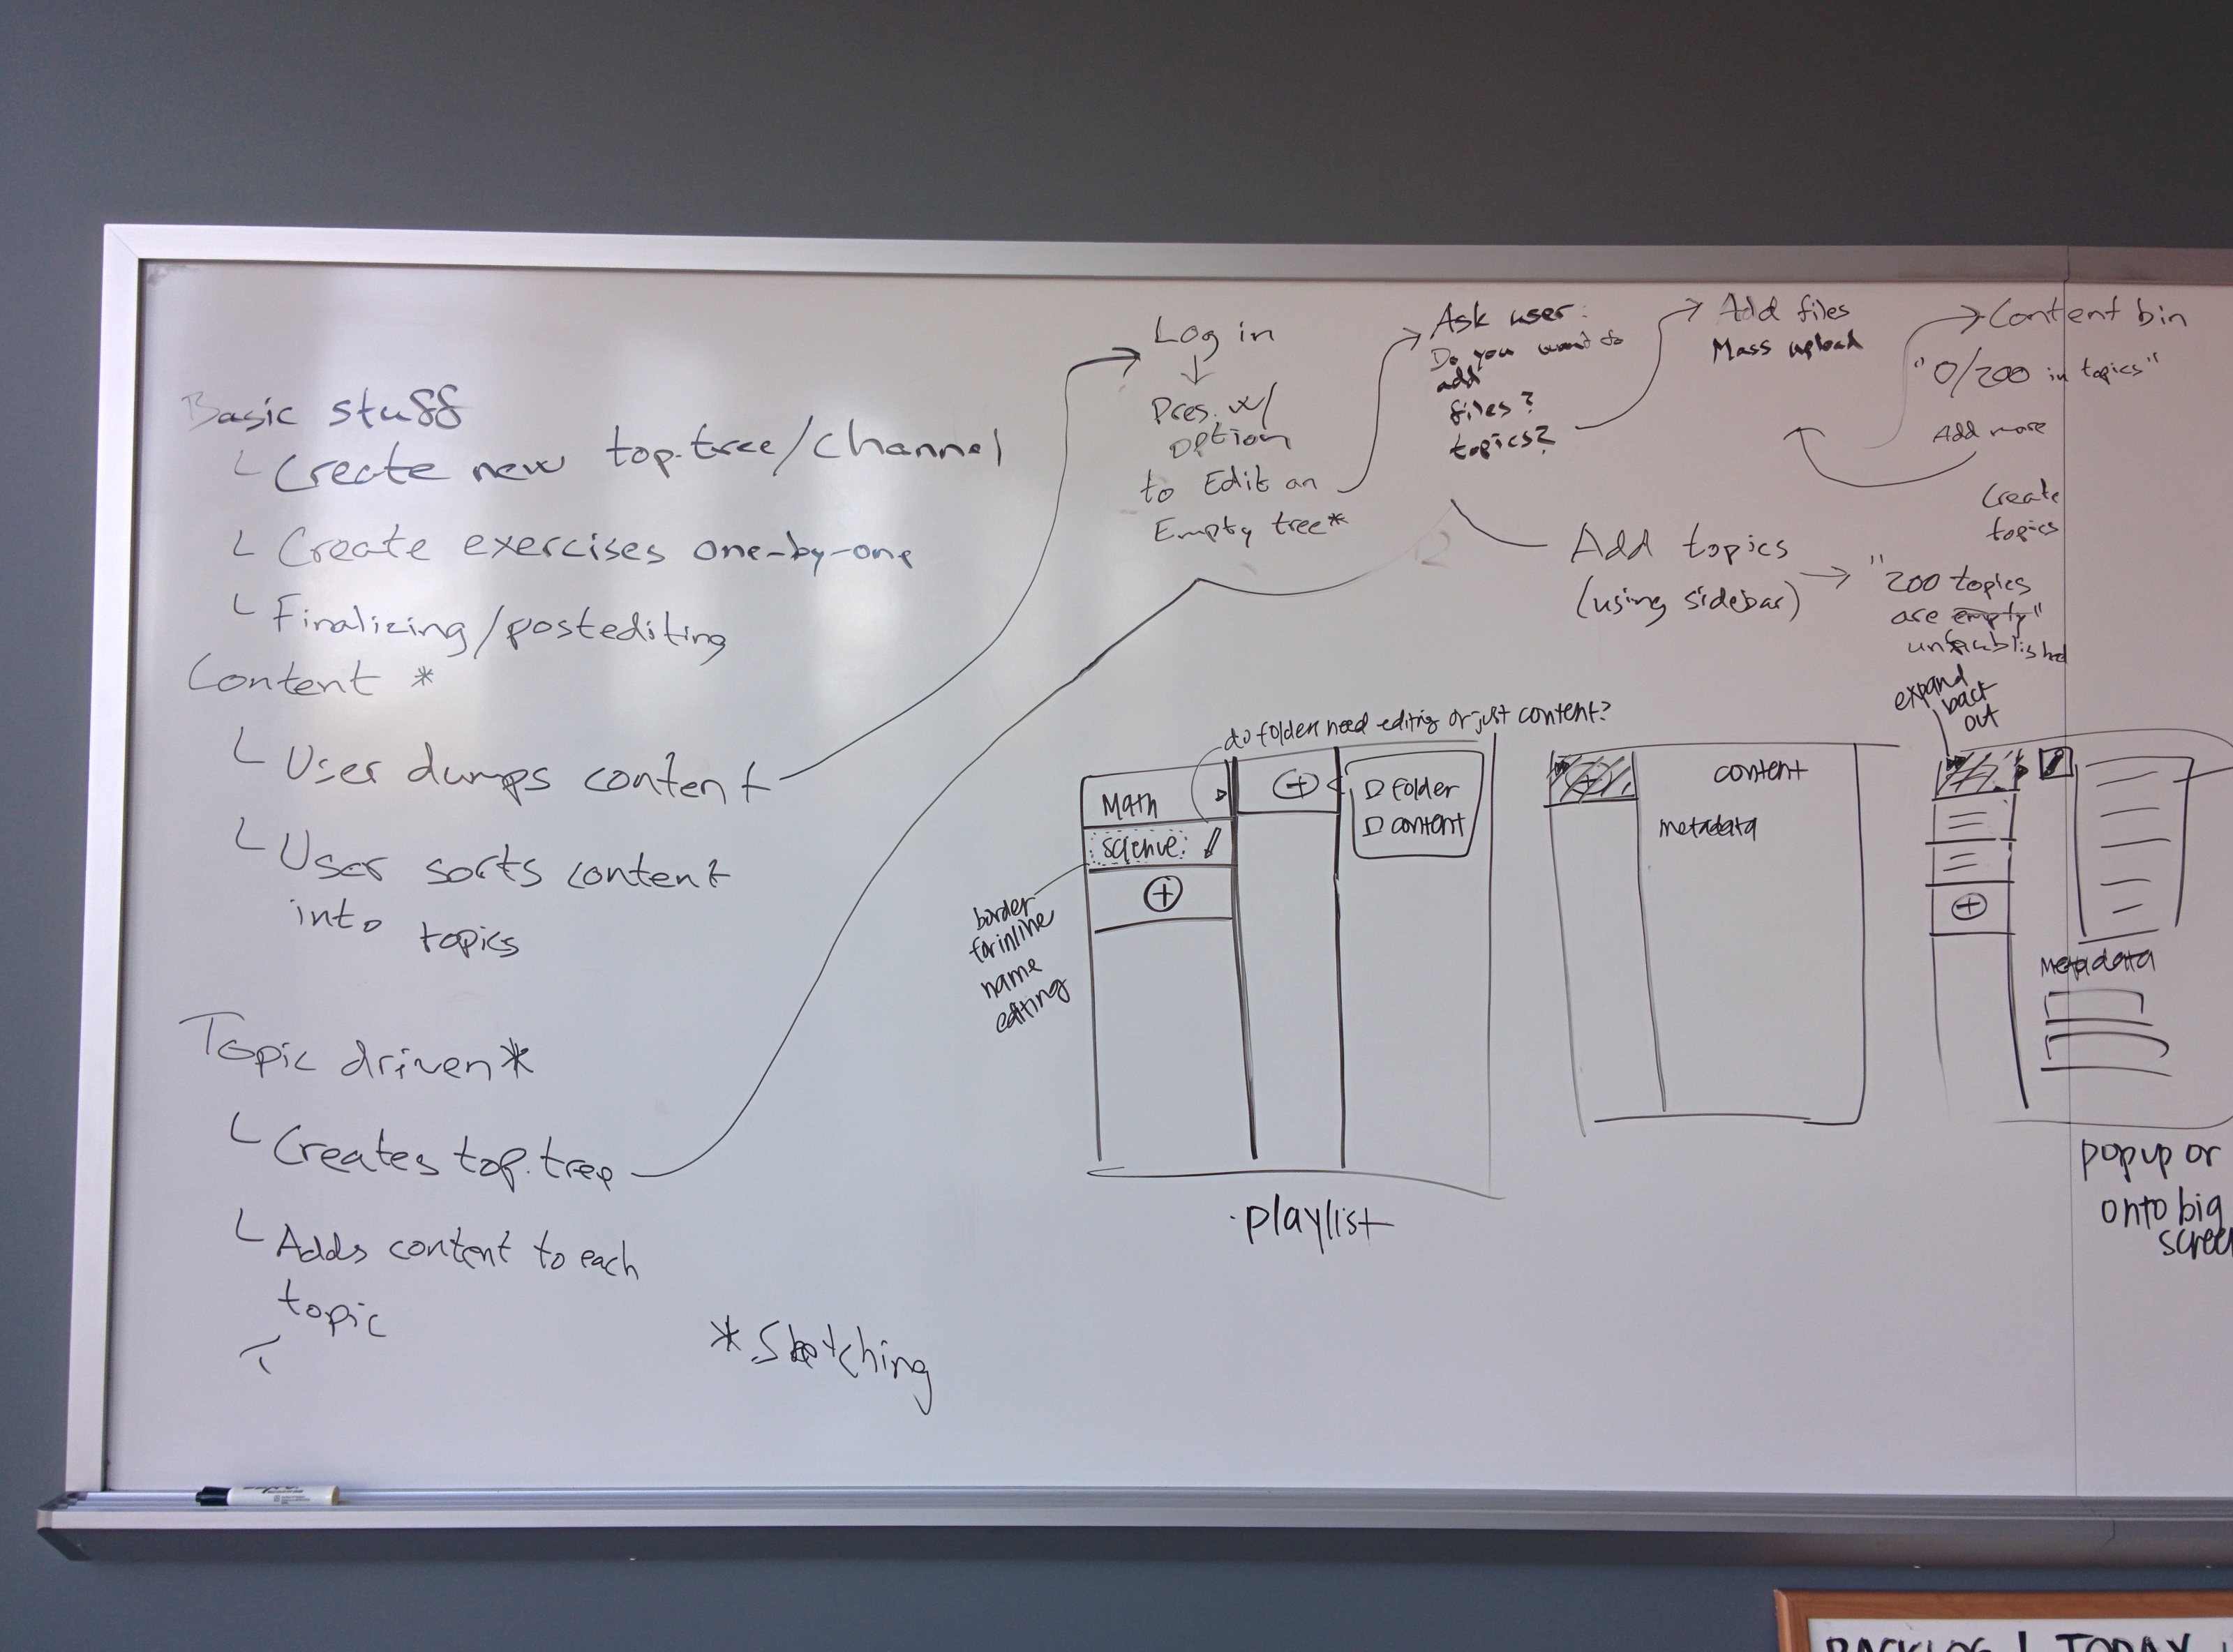 Basic stuff
Create new top.tree/channel
Create exercises one-by-one
Finalizing/postediting
Content *
User dumps content
User sorts content
into topics
Topic driven*
Creates top.tree
Adds content to each
topic
* Sketching
Log in
Pres. w/
option
to Edit an
Empty tree*
Ask user:
Do you want to
add
files?
topics?
Add files
Mass upload
Content bin
"0/200 in topics"
Add more
Create
topics
2
Add topics
(using sidebar)
"200 topics
are empty"
unpublished
do folders need editing or just content?
Math
science
border
for inline
name
editing
folder
content
playlist
content
metadata
expand
back
out
Metadata
popup or
onto big
screen
BACKLOG | TODAY